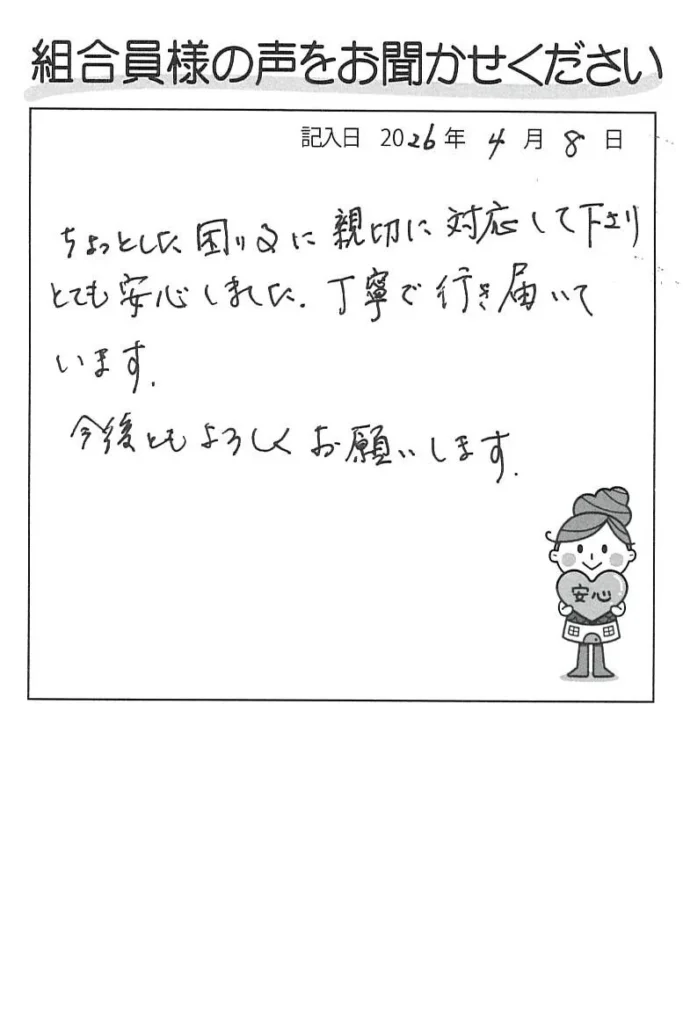 組合員様の声をお聞かせください
記入日 2026年 4月 8日
ちょっとした困り事に親切に対応して下さり
とても安心しました。丁寧で行き届いて
います。
今後ともよろしくお願いします。
安心